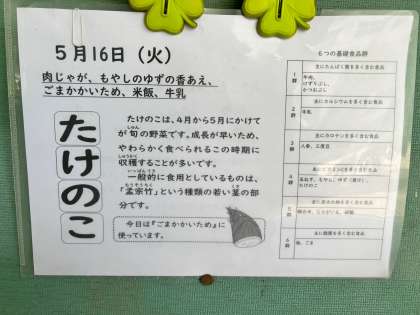 5月16日（火）
肉じゃが、もやしのゆずの香あえ、
ごまかかいため、米飯、牛乳
たけのこ
たけのこは、4月から5月にかけて
が旬の野菜です。成長が早いため、
やわらかく食べられるこの時期に
収穫することが多いです。
一般的に食用としているものは、
「孟宗竹」という種類の若い茎の部
分です。
今日は『ごまかかいため』に
使っています。
6つの基礎食品群
1群
主にたんぱく質を多く含む食品
牛肉、
けずりぶし、
かつおぶし
2群
主にカルシウムを多く含む食品
牛乳
3群
主にカロテンを多く含む食品
人参、三度豆
4群
たけのこ
5群
6群
主に脂質を多く含む食品
油、ごま